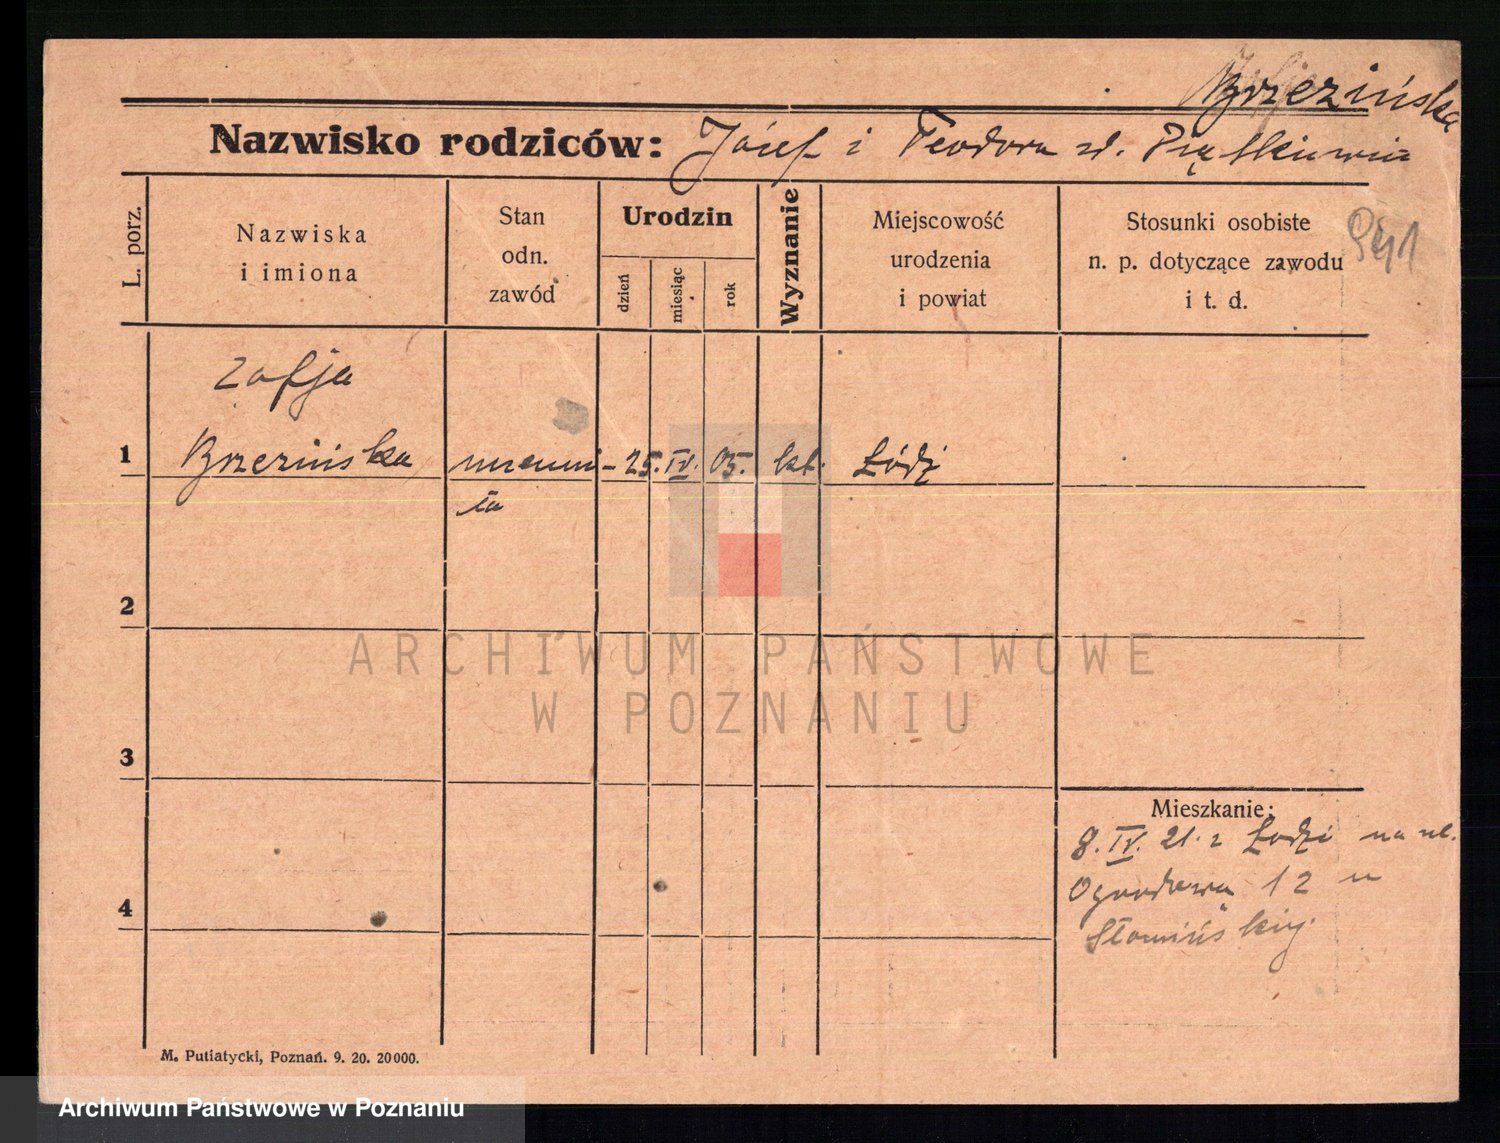 Brzezińska
Nazwisko rodziców: Józef i Teodora zd. Piątkiewicz
L. porz.
Nazwiska
i imiona
Stan
odn.
zawód
Urodzin
dzień
miesiąc
rok
Wyznanie
Miejscowość
urodzenia
i powiat
Stosunki osobiste
n. p. dotyczące zawodu
i t. d.
Zofja
1 Brzezińska - 25. IV. 05. kat. Łódź
2
3
Mieszkanie:
8. IV. 21. z Łodzi na ul.
Ogrodowa 12 u
Słomińskiej
4
ARCHIWUM PAŃSTWOWE
W POZNANIU
M. Putiatycki, Poznań. 9. 20. 20000.
Archiwum Państwowe w Poznaniu